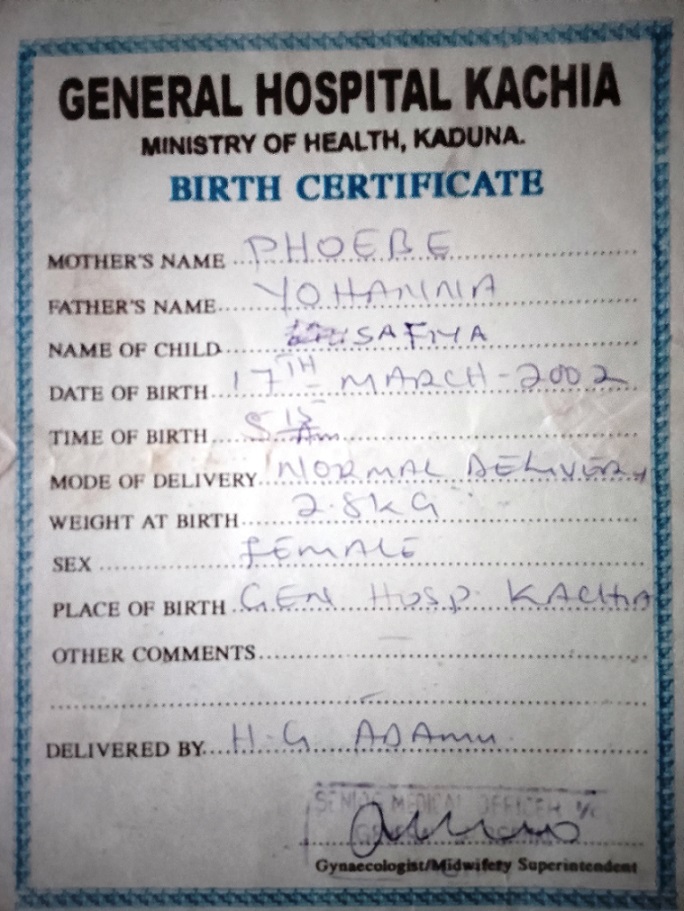 GENERAL HOSPITAL KACHIA
MINISTRY OF HEALTH, KADUNA.
BIRTH CERTIFICATE
MOTHER'S NAME PHOEBE
FATHER'S NAME YOHANNA
NAME OF CHILD SAFIYA
DATE OF BIRTH 17TH - MARCH - 2002
TIME OF BIRTH 5 15 Am
MODE OF DELIVERY NORMAL DELIVERY
WEIGHT AT BIRTH 2.8KG
SEX FEMALE
PLACE OF BIRTH GEN HOSP. KACHIA
OTHER COMMENTS
DELIVERED BY H.G ADAMU
SENIOR MEDICAL OFFICER I/C
Gynaecologist/Midwifety Superintendent